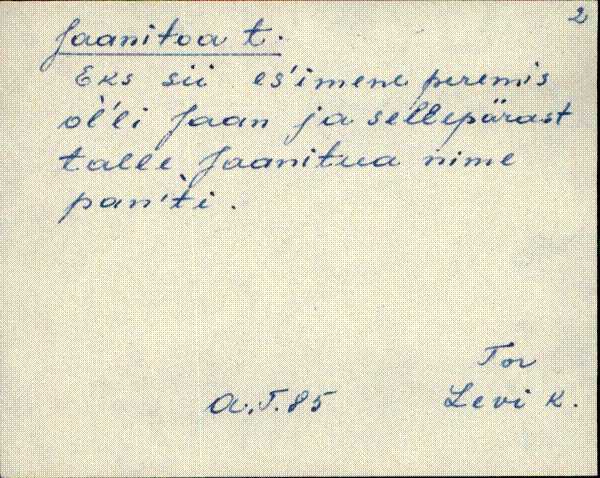 2
Jaanitoa t.
Eks sii es'imene peremis
ol'li Jaan ja sellepärast
talle Jaanitua nime
pan'ti.
Tor
A.T.85 Levi k.